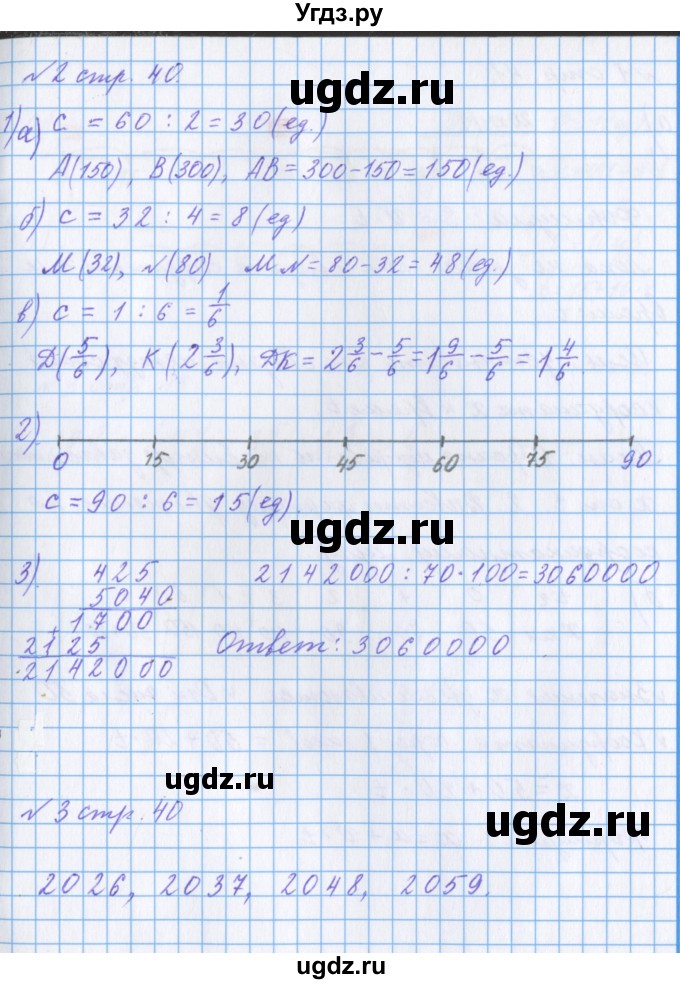 Угдз.ру
№2 стр. 40.
ugdz.ru
1) а) c = 60 : 2 = 30 (ед.)
A(150), B(300), AB = 300-150 = 150(ед.)
б) c = 32 : 4 = 8 (ед)
M(32), N(80) MN = 80-32 = 48(ед.)
в) c = 1 : 6 = 1/6
Д(5/6), К(2 3/6), ДК = 2 3/6 - 5/6 = 1 9/6 - 5/6 = 1 4/6
2)
0 15 30 45 60 75 90.
c = 90 : 6 = 15(ед).
ugdz.ru
3) 425 2142000 : 70 · 100 = 3060000
5040
1700
2125 Ответ: 3060000
2142000
ugdz.ru
№3 стр. 40
ugdz.ru
2026, 2037, 2048, 2059.
ugdz.ru